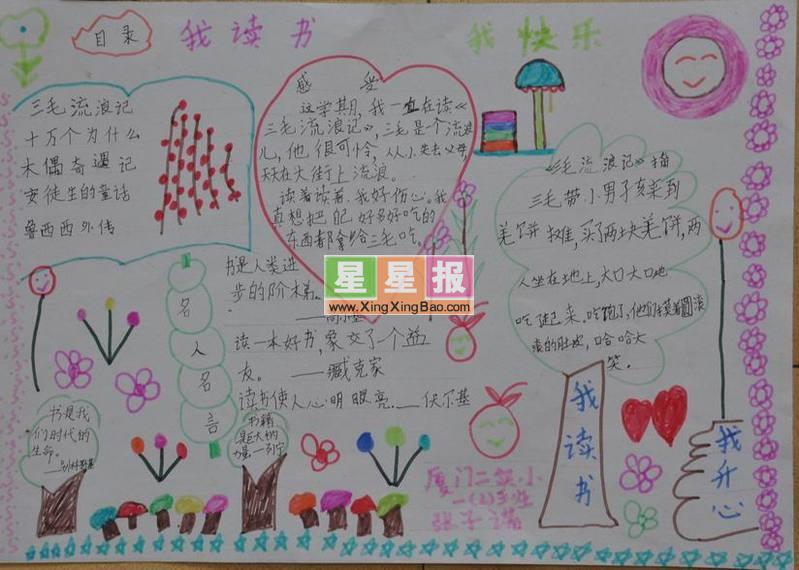 目录
我读书
我快乐
三毛流浪记
十万个为什么
木偶奇遇记
安徒生的童话
鲁西西外传
感受
这学期,我一直在读《
三毛流浪记》,三毛是个流浪
儿,他很可怜,从小失去父母,
天天在大街上流浪。
读着读着,我好伤心。我
真想把自己好多好吃的
东西都拿给三毛吃。
《三毛流浪记》摘
三毛带小男孩来到
羌饼摊,买了两块羌饼,两
人坐在地上,大口大口地
吃起来。吃饱了,他们摸着圆滚
滚的肚皮,哈哈大
笑.
名人名言
书是人类进
步的阶梯。
读一本好书,象交了一个益
友。——臧克家
读书使人心明眼亮.——伏尔基
星星报
www.XingXingBao.com
书是我
们时代的
生命。
书籍
是巨大的
力量—列宁
我读书
我开心
厦门二实小
一(2)班